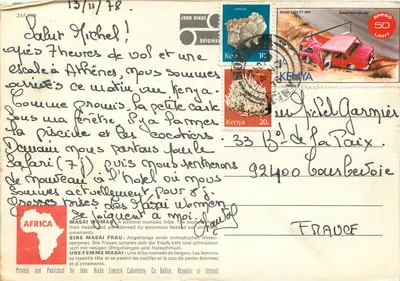 13/11/78
Salut Michel!
après 7 heures de vol et une
escale à Athènes, nous sommes
arrivés ce matin au Kenya
Comme promis, la petite carte
sous ma fenêtre, il y a la mer
la piscine et les cocotiers
Demain nous partons pour le
Safari (7j) puis nous rentrerons
de nouveau à l'hôtel où nous
sommes actuellement, pour 8 j.
Grosses bises. Les Masai women
se joignent à moi.
JOHN HINDE
ORIGINAL
Kenya 1/-
Kenya 20c
KENYA
SPEED 50 LIMIT
Michel Garnier
33 Bd de La Paix
92400 Courbevoie
FRANCE
AFRICA
MASAI WOMAN: A pastoral nomadic tribe. The
their heads and are adorned by enormous beaded
ornaments.
EINE MASAI FRAU: Angehörige eines nomadischen Hirten-
stammes. Die Frauen scheren sich die Köpfe kahl und schmücken
sich mit riesigen Ohrgehängen und Halsschmuck.
UNE FEMME MASAI: Une tribu nomade de bergers. Les femmes
se rasent la tête et se parent les oreilles et le cou d'énormes perles
et d'ornements.
Printed and Published by John Hinde Limited, Cabinteely, Co. Dublin, Republic of Ireland.